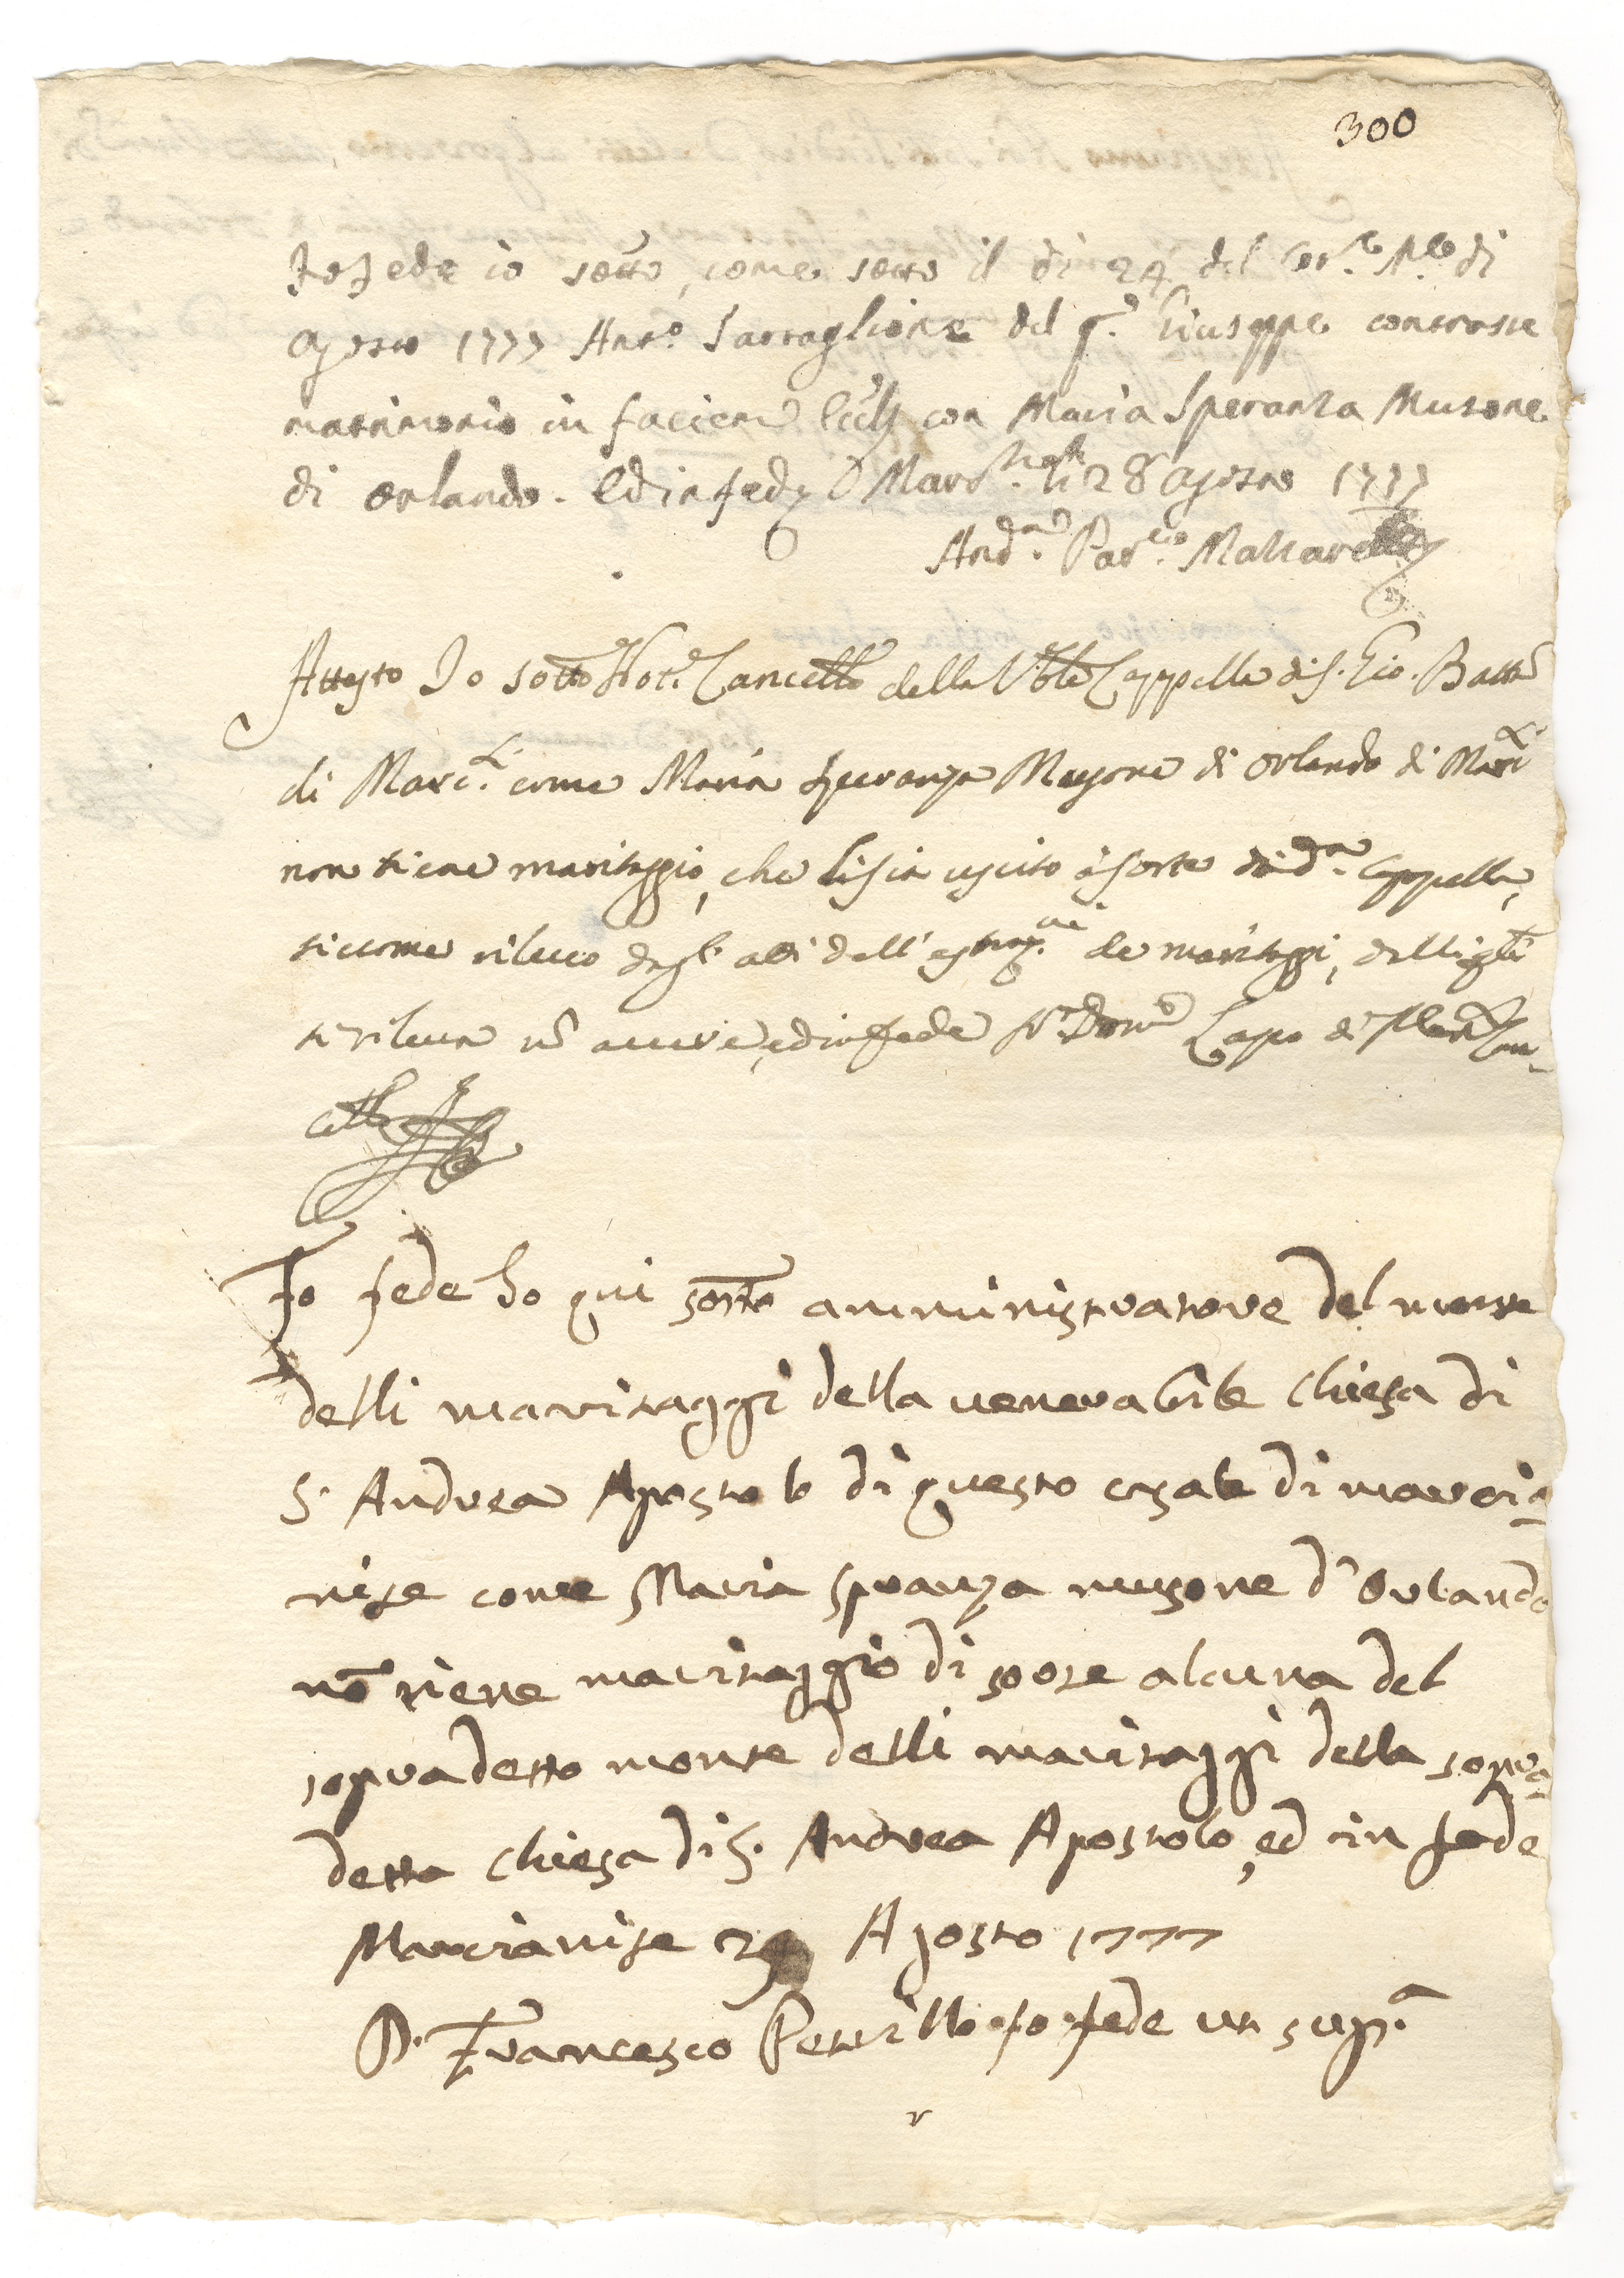 300
Fo fede io sotto, come sotto il dì 24 del di
Agosto 1777 Ant.o Tartaglione del q.m Giuseppe contrasse
matrimonio in faciem Eccl. con Maria Speranza Musone
di Orlando. Ed in fede Marc. li 28 Agosto 1777
And.a Par.co
Attesto Io sotto Not.r Cancell.o della V.ble Cappella di S. Gio. Batta
di Marc. come Maria Speranza Musone di Orlando di Marc.
non tiene maritaggio, che li sia uscito à sorte da d.ta Cappella,
siccome rilevo dagl'atti dell'estraz.ne de maritaggi, dalli q.li
si rileva nõ avere, ed in fede N.r Dom.co Capo di Marc. Can-
cell.o
Fo fede Io qui sotto amministratore del monte
delli maritaggi della venerabile Chiesa di
S. Andrea Apostolo di questo casale di marcia
nise come Maria Speranza musone d'Orlando
nõ tiene maritaggio di sorte alcuna del
sopradetto monte delli maritaggi della sopra
detta Chiesa di S. Andrea Apostolo, ed in fede
Marcianise Agosto 1777
D. Francesco Petrillo fo fede ut sup.a